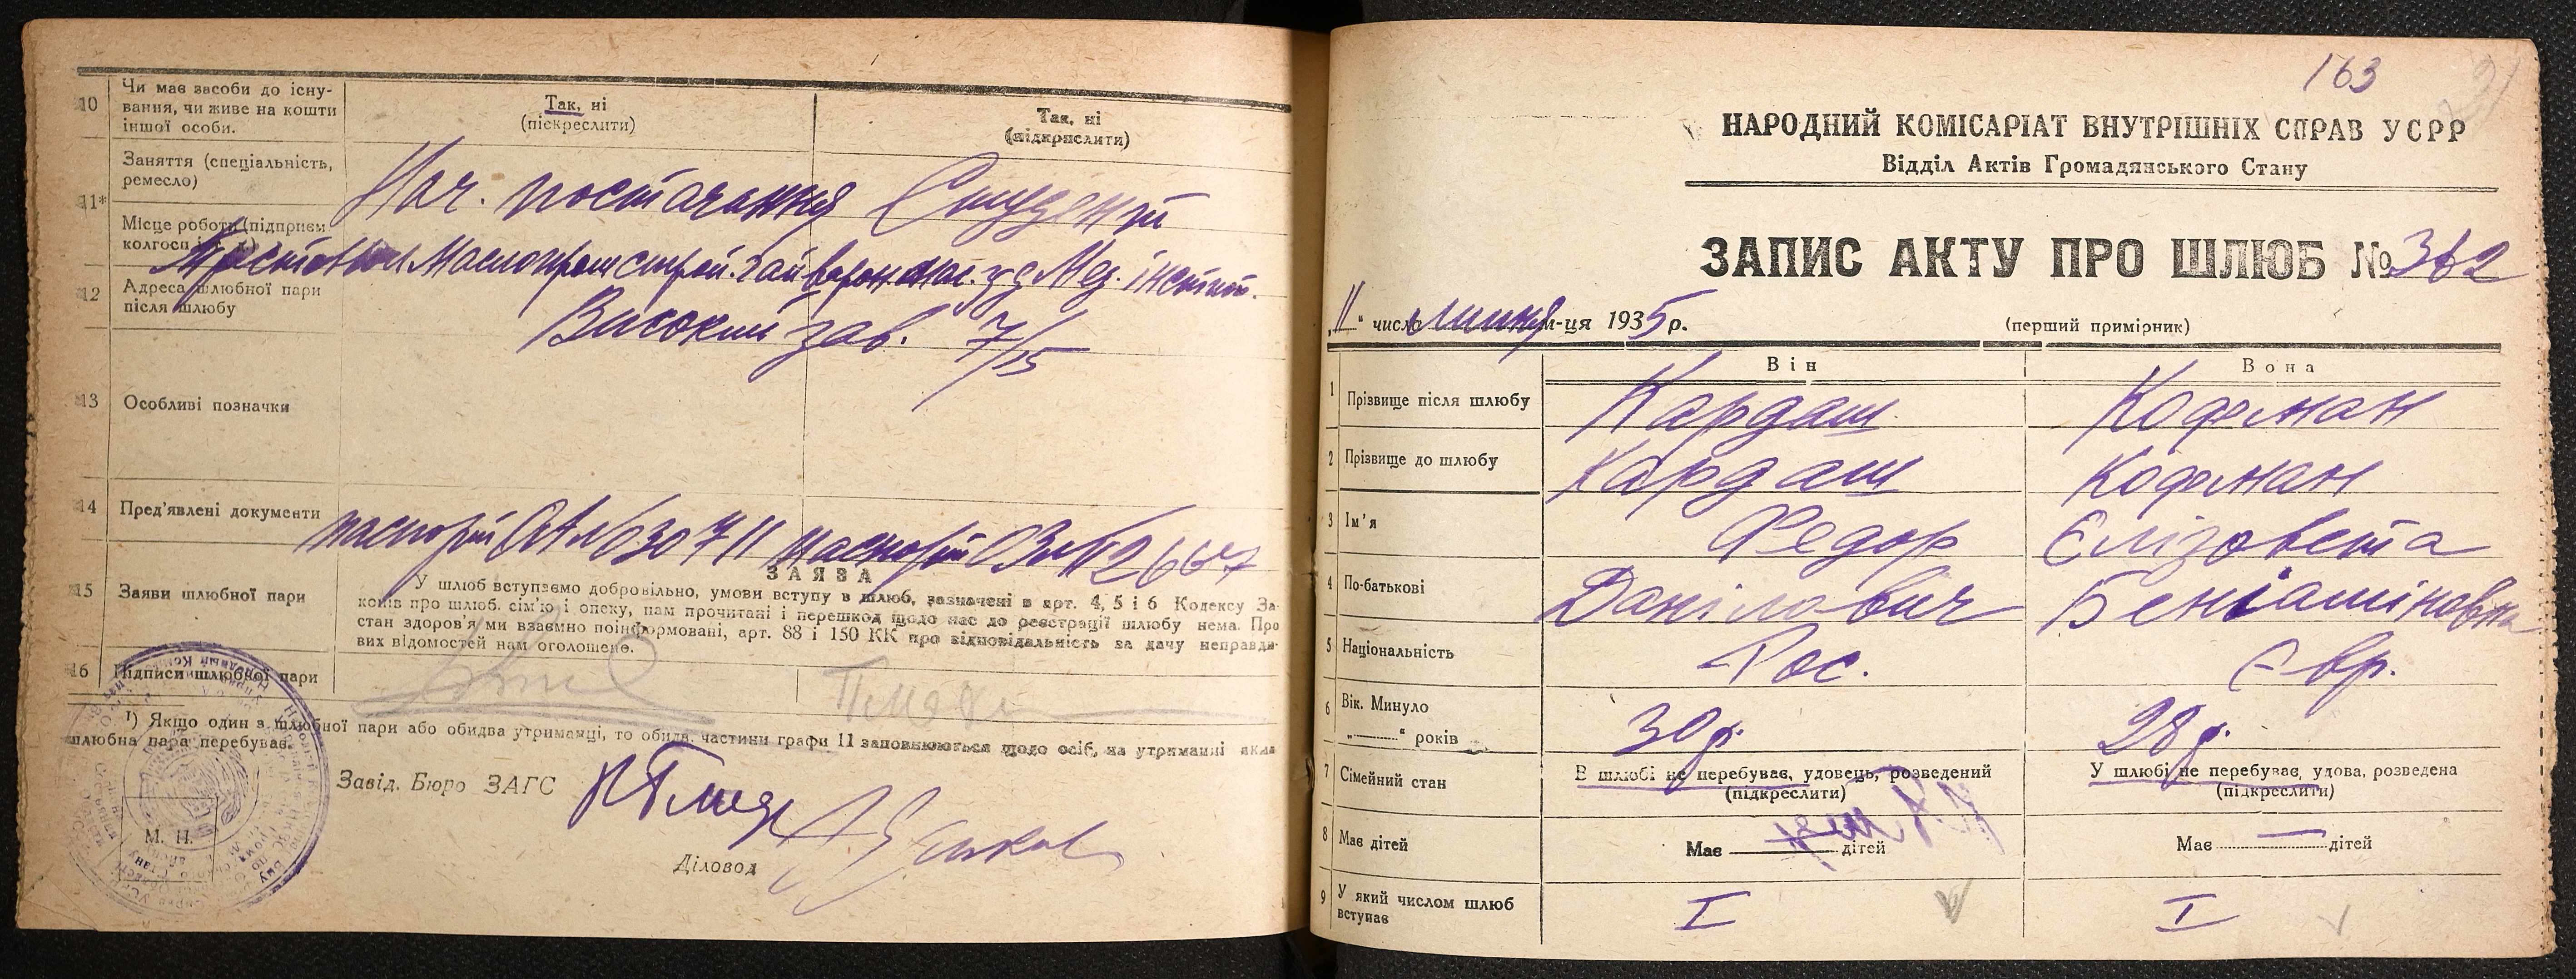 10
Чи має засоби до існу-
вання, чи живе на кошти
іншої особи.
Так, ні
(піскреслити)
Так, ні
(підкреслити)
11*
Заняття (спеціальність,
ремесло)
Нач. постачання
Студент
Місце роботи (підприєм
колгосп
Маслопромстрой.
Мед. інстит.
12
Адреса шлюбної пари
після шлюбу
Високий зав. 7/15
13
Особливі позначки
14
Пред'явлені документи
паспорт
паспорт
15
Заяви шлюбної пари
ЗАЯВА
У шлюб вступаємо добровільно, умови вступу в шлюб, зазначені в арт. 4, 5 і 6 Кодексу За-
конів про шлюб, сім'ю і опеку, нам прочитані і перешкод щодо нас до реєстрації шлюбу нема. Про
стан здоров'я ми взаємно поінформовані, арт. 88 і 150 КК про відповідальність за дачу неправди-
вих відомостей нам оголошено.
16
Підписи шлюбної пари
¹) Якщо один з шлюбної пари або обидва утриманці, то обидв. частини графи 11 заповнюються щодо осіб, на утриманні яких
шлюбна пара перебуває.
Завід. Бюро ЗАГС
М. П.
Діловод
163
НАРОДНИЙ КОМІСАРІАТ ВНУТРІШНІХ СПРАВ УСРР
Відділ Актів Громадянського Стану
ЗАПИС АКТУ ПРО ШЛЮБ № 362
„11“ число липня м-ця 1935 р.
(перший примірник)
Він
Вона
1
Прізвище після шлюбу
Кардаш
Кофман
2
Прізвище до шлюбу
Кардаш
Кофман
3
Ім'я
Федор
Єлізовета
4
По-батькові
Данілович
Беніаміновна
5
Національність
Рос.
Євр.
6
Вік. Минуло
„ “ років
30 р.
28 р.
7
Сімейний стан
В шлюбі не перебуває, удовець, розведений
(підкреслити)
У шлюбі не перебуває, удова, розведена
(підкреслити)
8
Має дітей
Має — дітей
Має — дітей
9
У який числом шлюб
вступає
I
I